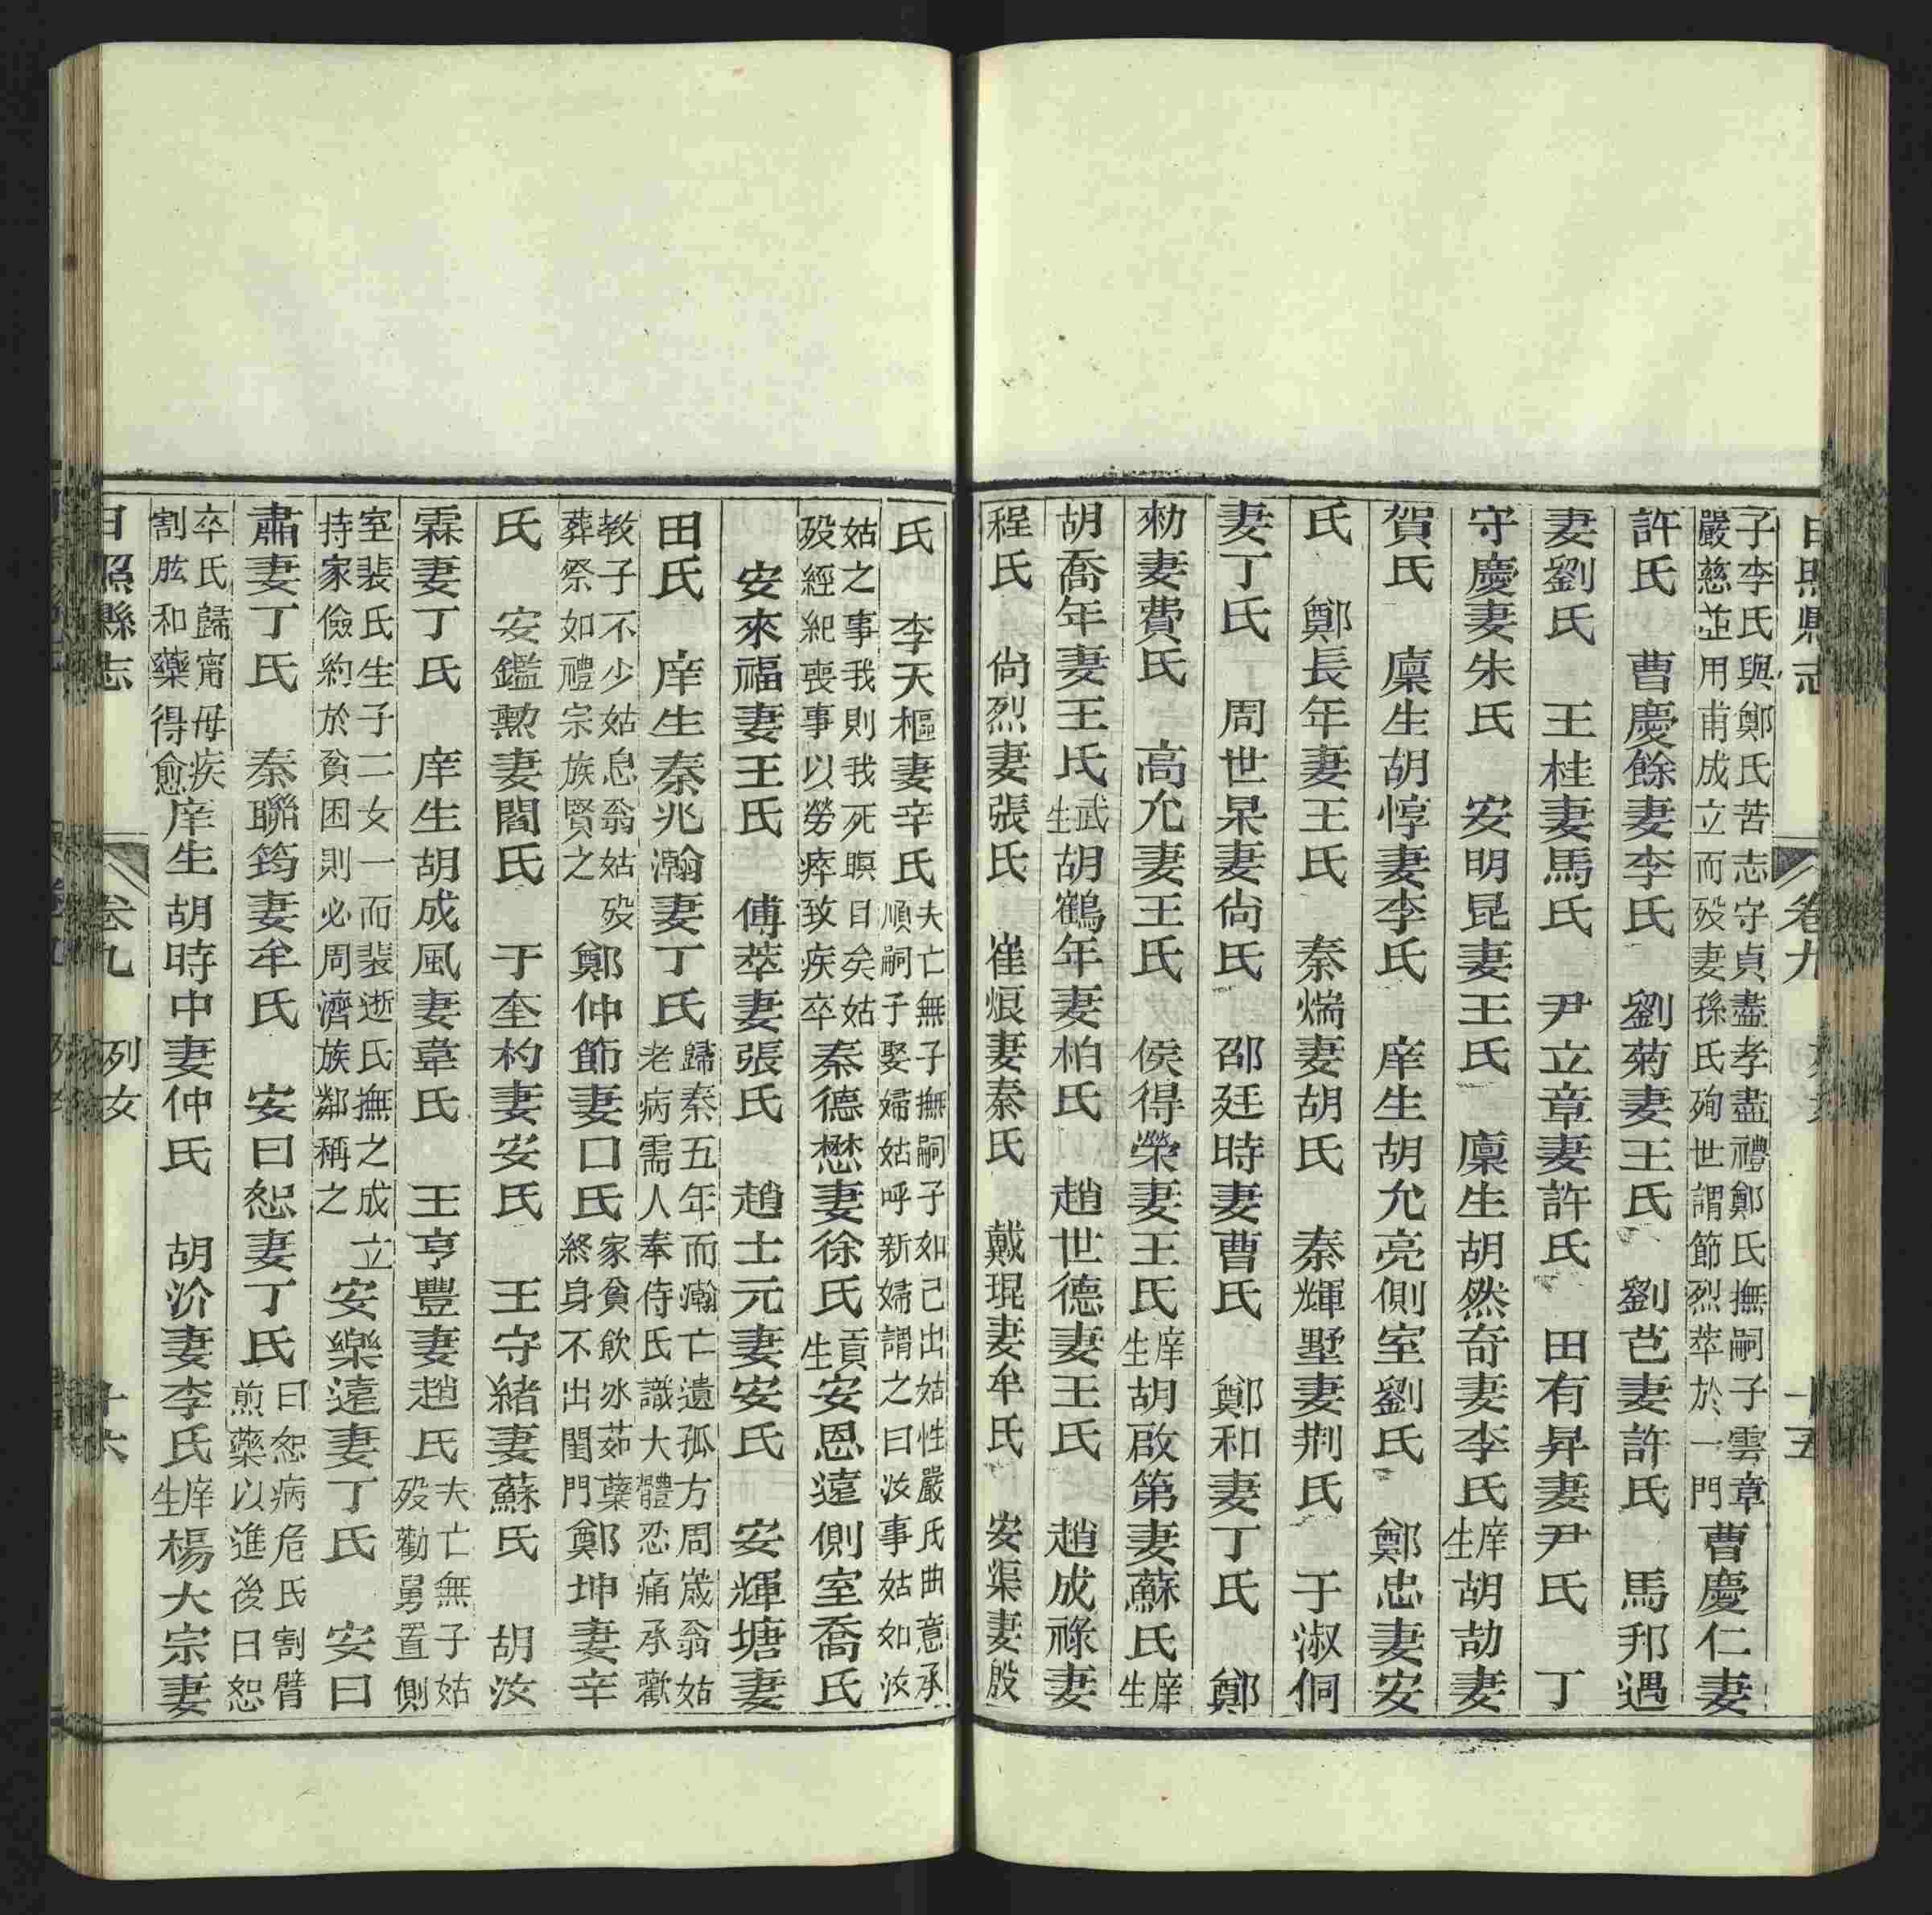 日照縣志 卷九 列女 十五
子李氏與鄭氏苦志守貞盡孝盡禮鄭氏撫嗣子雲章
嚴慈並用甫成立而殁妻孫氏殉世謂節烈萃於一門
曹慶仁妻
許氏 曹慶餘妻李氏 劉菊妻王氏 劉芭妻許氏 馬邦遇
妻劉氏 王桂妻馬氏 尹立章妻許氏 田有昇妻尹氏 丁
守慶妻朱氏 安明昆妻王氏 廩生胡然奇妻李氏 庠生胡劼妻
賀氏 廩生胡惇妻李氏 庠生胡允亮側室劉氏 鄭忠妻安
氏 鄭長年妻王氏 秦煓妻胡氏 秦輝墅妻荆氏 于淑侗
妻丁氏 周世杲妻尙氏 邵廷時妻曹氏 鄭和妻丁氏 鄭
勑妻費氏 高允妻王氏 侯得榮妻王氏 庠生胡啟第妻蘇氏 庠生
胡喬年妻王氏 武生胡鶴年妻柏氏 趙世德妻王氏 趙成祿妻
程氏 尙烈妻張氏 崔烺妻秦氏 戴琨妻牟氏 安渠妻殷
氏 李天樞妻辛氏
夫亡無子撫嗣子如己出姑性嚴氏曲意承
順嗣子娶婦姑呼新婦謂之曰汝事姑如汝
姑之事我則我死瞑目矣姑
殁經紀喪事以勞瘁致疾卒
秦德懋妻徐氏 貢生安恩遠側室喬氏
安來福妻王氏 傅萃妻張氏 趙士元妻安氏 安輝塘妻
田氏 庠生秦兆瀚妻丁氏
歸秦五年而瀚亡遺孤方周歲翁姑
老病需人奉侍氏識大體忍痛承歡
教子不少姑息翁姑殁
葬祭如禮宗族賢之
鄭仲節妻口氏
家貧飲冰茹蘗
終身不出閨門
鄭坤妻辛
氏 安鑑勲妻閻氏 于奎杓妻安氏 王守緒妻蘇氏 胡汝
霖妻丁氏 庠生胡成風妻韋氏 王亨豐妻趙氏
夫亡無子姑
殁勸舅置側
室裴氏生子二女一而裴逝氏撫之成立
持家儉約於貧困則必周濟族鄰稱之
安樂遠妻丁氏 安曰
肅妻丁氏 秦聯筠妻牟氏 安曰恕妻丁氏
曰恕病危氏割臂
煎藥以進後曰恕
卒氏歸甯母疾
割肱和藥得愈
庠生胡時中妻仲氏 胡汾妻李氏 庠生楊大宗妻
日照縣志 卷九 列女 十六